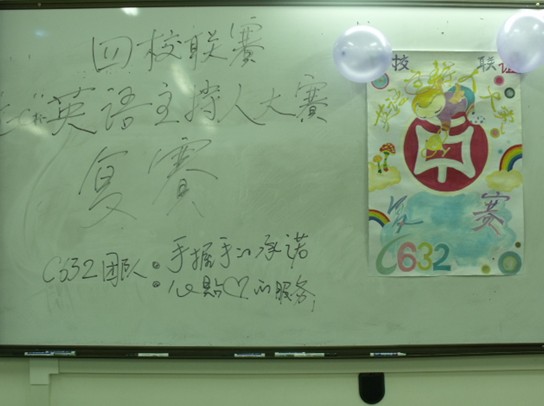 四校联赛
英语主持人大赛
复赛
C632团队:手握手的承诺
心贴♡的服务
校 联谊
复 赛
C632